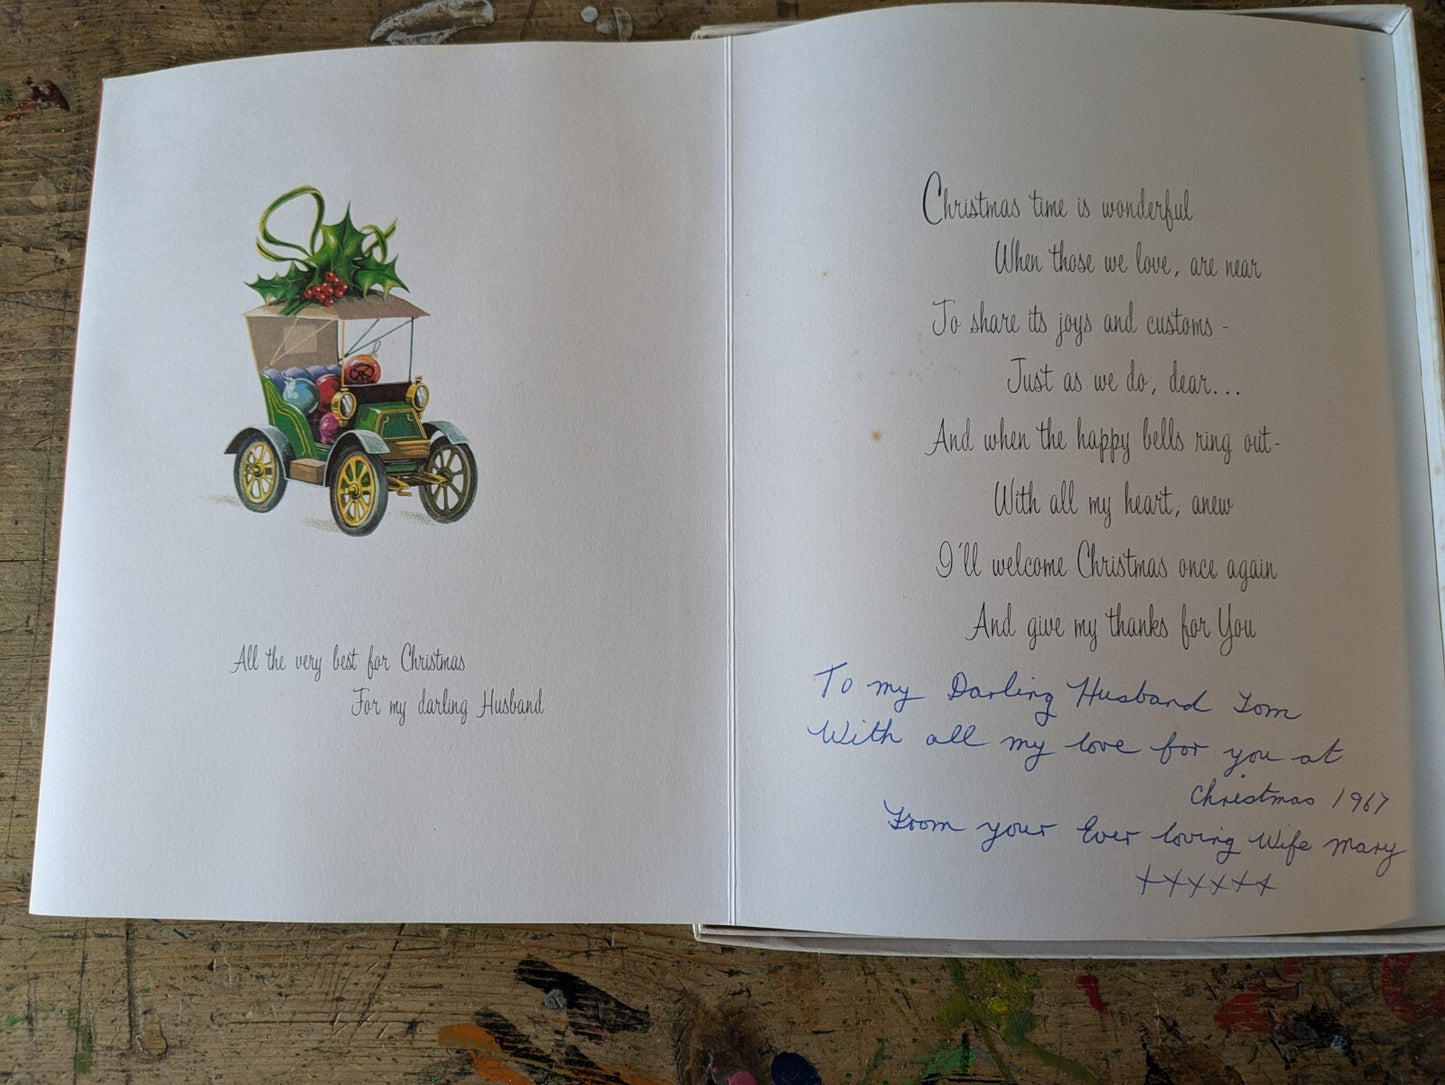 All the very best for Christmas
For my darling Husband
Christmas time is wonderful
When those we love, are near
To share its joys and customs -
Just as we do, dear...
And when the happy bells ring out-
With all my heart, anew
I'll welcome Christmas once again
And give my thanks for You
To my Darling Husband Tom
With all my love for you at
Christmas 1967
From your Ever loving Wife Mary
xxxxxx